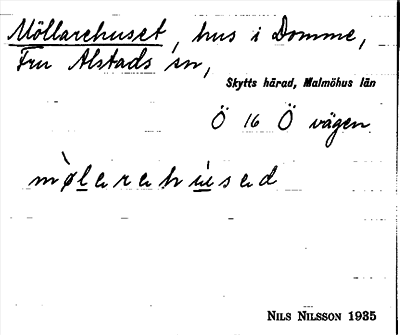 Möllarehuset, hus i Domme,
Fru Alstads sn,
Skytts härad, Malmöhus län
Ö 16 Ö vägen.
mø̀larahúsad
NILS NILSSON 1935